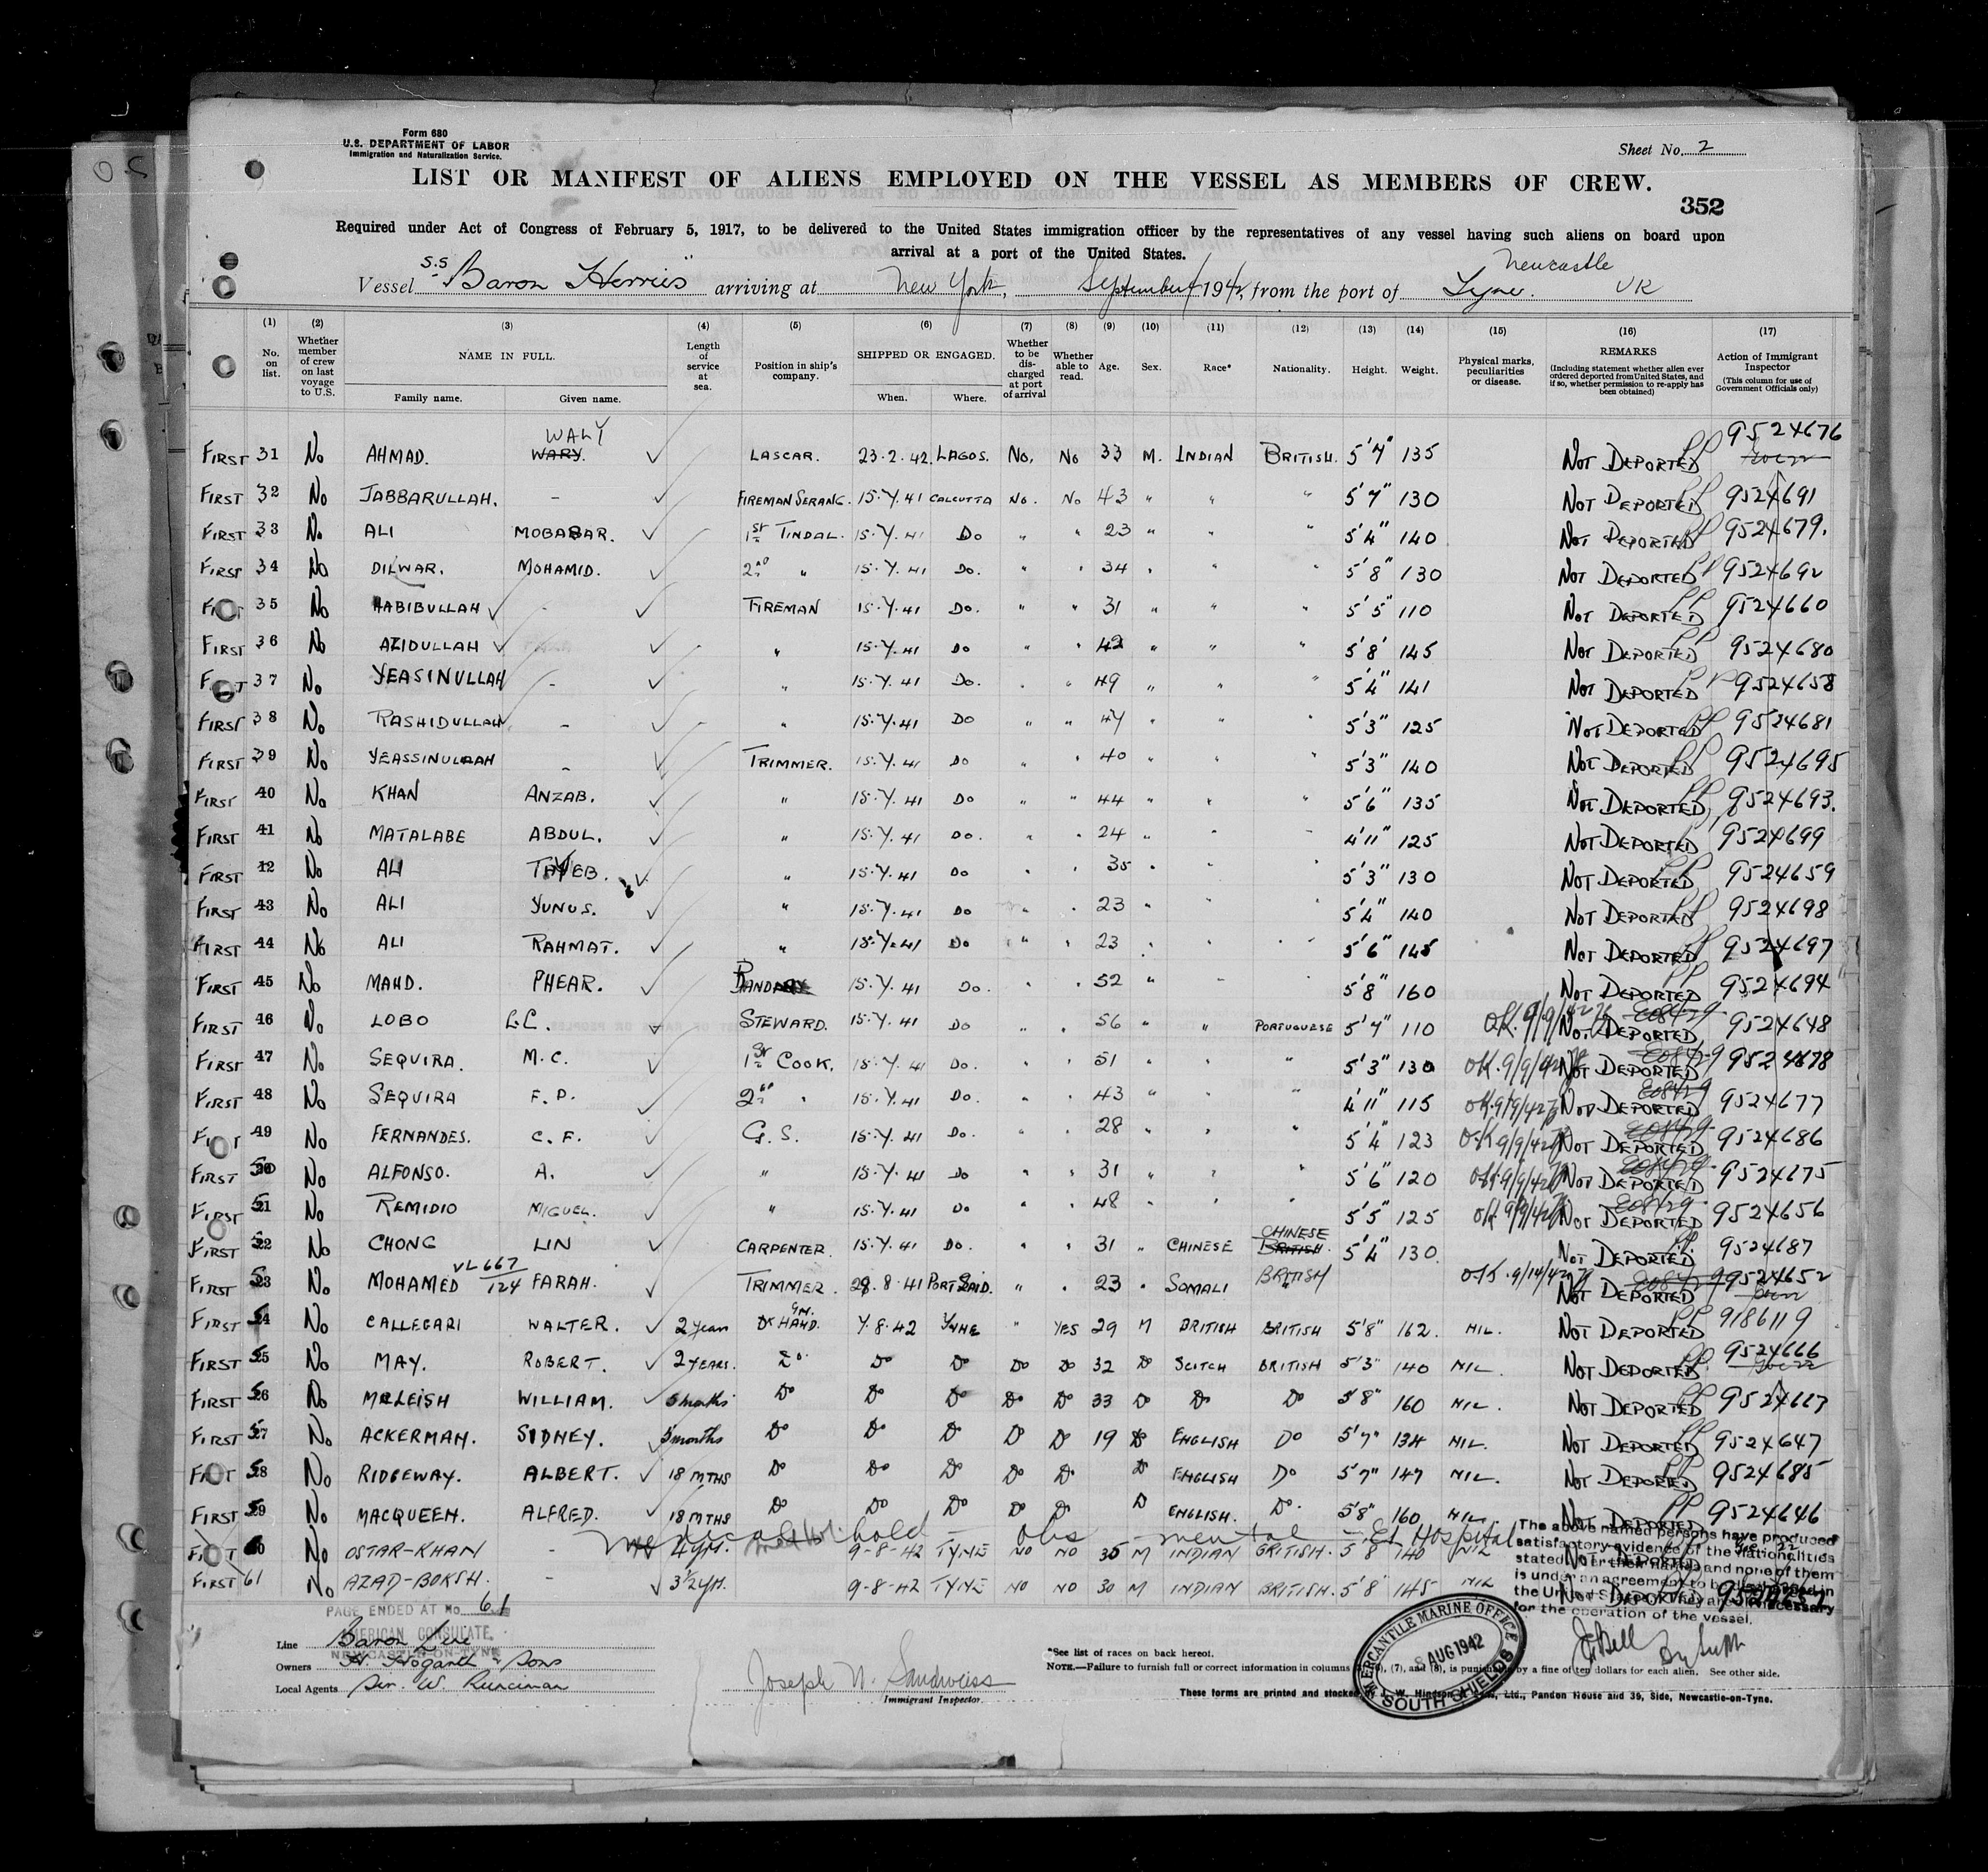 Form 680
U.S. DEPARTMENT OF LABOR
Immigration and Naturalization Service.
Sheet No. 2
LIST OR MANIFEST OF ALIENS EMPLOYED ON THE VESSEL AS MEMBERS OF CREW.
352
Required under Act of Congress of February 5, 1917, to be delivered to the United States immigration officer by the representatives of any vessel having such aliens on board upon
arrival at a port of the United States.
Newcastle
Vessel S.S Baron Herries arriving at New York, September 1942, from the port of Tyne. UK
(1) (2) (3) (4) (5) (6) (7) (8) (9) (10) (11) (12) (13) (14) (15) (16) (17)
No. on list.
Whether member of crew on last voyage to U.S.
NAME IN FULL.
Family name. Given name.
Length of service at sea.
Position in ship's company.
SHIPPED OR ENGAGED.
When. Where.
Whether to be discharged at port of arrival
Whether able to read.
Age.
Sex.
Race*
Nationality.
Height.
Weight.
Physical marks, peculiarities or disease.
REMARKS
(Including statement whether alien ever ordered deported from United States, and if so, whether permission to re-apply has been obtained)
Action of Immigrant Inspector
(This column for use of Government Officials only)
WALY
FIRST 31 No AHMAD. WARY. LASCAR. 23.2.42. LAGOS. No. No 33 M. INDIAN BRITISH. 5'7" 135 NOT DEPORTED 9524676
FIRST 32 No JABBARULLAH. - FIREMAN SERANG. 15.7.41 CALCUTTA No. No 43 " " " 5'7" 130 NOT DEPORTED 9524691
FIRST 33 No ALI MOBABAR. 1ST TINDAL. 15.7.41 Do " " 23 " " " 5'4" 140 NOT DEPORTED 9524679.
FIRST 34 No DILWAR. MOHAMID. 2ND " 15.7.41 Do. " " 34 " " " 5'8" 130 NOT DEPORTED 9524692
FIRST 35 No HABIBULLAH - FIREMAN 15.7.41 Do. " " 31 " " " 5'5" 110 NOT DEPORTED 9524660
FIRST 36 No AZIDULLAH " 15.7.41 Do " " 42 " " " 5'8" 145 NOT DEPORTED 9524680
FIRST 37 No YEASINULLAH - " 15.7.41 Do. " " 49 " " " 5'4" 141 NOT DEPORTED 9524658
FIRST 38 No RASHIDULLAH - " 15.7.41 Do " " 47 " " " 5'3" 125 NOT DEPORTED 9524681
FIRST 39 No YEASSINULLAH - TRIMMER. 15.7.41 Do " " 40 " " " 5'3" 140 NOT DEPORTED 9524695
FIRST 40 No KHAN ANZAB. " 15.7.41 Do " " 44 " " " 5'6" 135 NOT DEPORTED 9524693.
FIRST 41 No MATALABE ABDUL. " 15.7.41 Do. " " 24 " " " 4'11" 125 NOT DEPORTED 9524699
FIRST 42 No ALI TAYEB. " 15.7.41 Do " " 35 " " " 5'3" 130 NOT DEPORTED 9524659
FIRST 43 No ALI YUNUS. " 15.7.41 Do " " 23 " " " 5'4" 140 NOT DEPORTED 9524698
FIRST 44 No ALI RAHMAT. " 15.7.41 Do " " 23 " " " 5'6" 145 NOT DEPORTED 9524697
FIRST 45 No MAHD. PHEAR. 15.7.41 Do. " " 52 " " " 5'8" 160 NOT DEPORTED 9524694
FIRST 46 No LOBO STEWARD. 15.7.41 Do " " 56 " " PORTUGUESE 5'7" 110 OK. 9/9/42 NOT DEPORTED 9524648
FIRST 47 No SEQUIRA. M.C. 1ST COOK. 15.7.41 Do. " " 51 " " " 5'3" 130 OK. 9/9/42 NOT DEPORTED 9524678
FIRST 48 No SEQUIRA F.P. 2ND " 15.7.41 Do. " " 43 " " " 4'11" 115 OK 9/9/42 NOT DEPORTED 9524677
FIRST 49 No FERNANDES. C.F. G.S. 15.7.41 Do. " " 28 " " " 5'4" 123 OK 9/9/42 NOT DEPORTED 9524686
FIRST 50 No ALFONSO. A. " 15.7.41 Do " " 31 " " " 5'6" 120 OK 9/9/42 NOT DEPORTED 9524675
FIRST 51 No REMIDIO MIGUEL. " 15.7.41 Do " " 48 " " " 5'5" 125 OK 9/9/42 NOT DEPORTED 9524656
CHINESE
FIRST 52 No CHONG LIN CARPENTER. 15.7.41 Do. " " 31 " CHINESE BRITISH. 5'4" 130 NOT DEPORTED 9524687
VL 667/124
FIRST 53 No MOHAMED FARAH. TRIMMER. 28.8.41 PORT SAID. " " 23 " SOMALI BRITISH OK. 9/10/42 NOT DEPORTED 9524652
FIRST 54 No CALLEGARI WALTER. 2 Years DK HAND. GN. 7.8.42 TYNE " YES 29 M BRITISH BRITISH 5'8" 162. NIL. NOT DEPORTED 9186119
FIRST 55 No MAY. ROBERT. 2 YEARS. Do Do Do Do Do 32 Do SCOTCH BRITISH 5'3" 140 NIL NOT DEPORTED 9524666
FIRST 56 No McLEISH WILLIAM. 6 months Do Do Do Do Do 33 Do Do Do 5'8" 160 NIL. NOT DEPORTED 9524667
FIRST 57 No ACKERMAN. SIDNEY. 3 months Do Do Do Do Do 19 Do ENGLISH Do 5'7" 134 NIL. NOT DEPORTED 9524647
FIRST 58 No RIDGEWAY. ALBERT. 18 MTHS Do Do Do Do Do Do ENGLISH Do 5'7" 147 NIL. NOT DEPORTED 9524685
FIRST 59 No MACQUEEN. ALFRED. 18 MTHS Do Do Do Do Do Do ENGLISH. Do. 5'8" 160 NIL. NOT DEPORTED 9524646
medical hold - obs - mental - EI Hospital
FIRST 60 No OSTAR-KHAN - 4 YR. 9-8-42 TYNE NO NO 35 M INDIAN BRITISH. 5'8" 140 NIL NOT DEPORTED
FIRST 61 No AZAD-BOKSH. - 3½ YR. 9-8-42 TYNE NO NO 30 M INDIAN BRITISH. 5'8" 145 NIL NOT DEPORTED
The above named persons have produced
satisfactory evidence of the nationalities
stated after their names and none of them
is under an agreement to be discharged in
the United States. They are necessary
for the operation of the vessel.
PAGE ENDED AT No. 61
AMERICAN CONSULATE,
NEWCASTLE-ON-TYNE
Line Baron Line
Owners H. Hogarth & Sons
Local Agents Sir. W. Runciman
Joseph N. Sandweiss
Immigrant Inspector.
MERCANTILE MARINE OFFICE
8 AUG 1942
SOUTH SHIELDS
*See list of races on back hereof.
NOTE.—Failure to furnish full or correct information in columns (7), and (8), is punishable by a fine of ten dollars for each alien. See other side.
These forms are printed and stocked Ltd., Pandon House and 39, Side, Newcastle-on-Tyne.